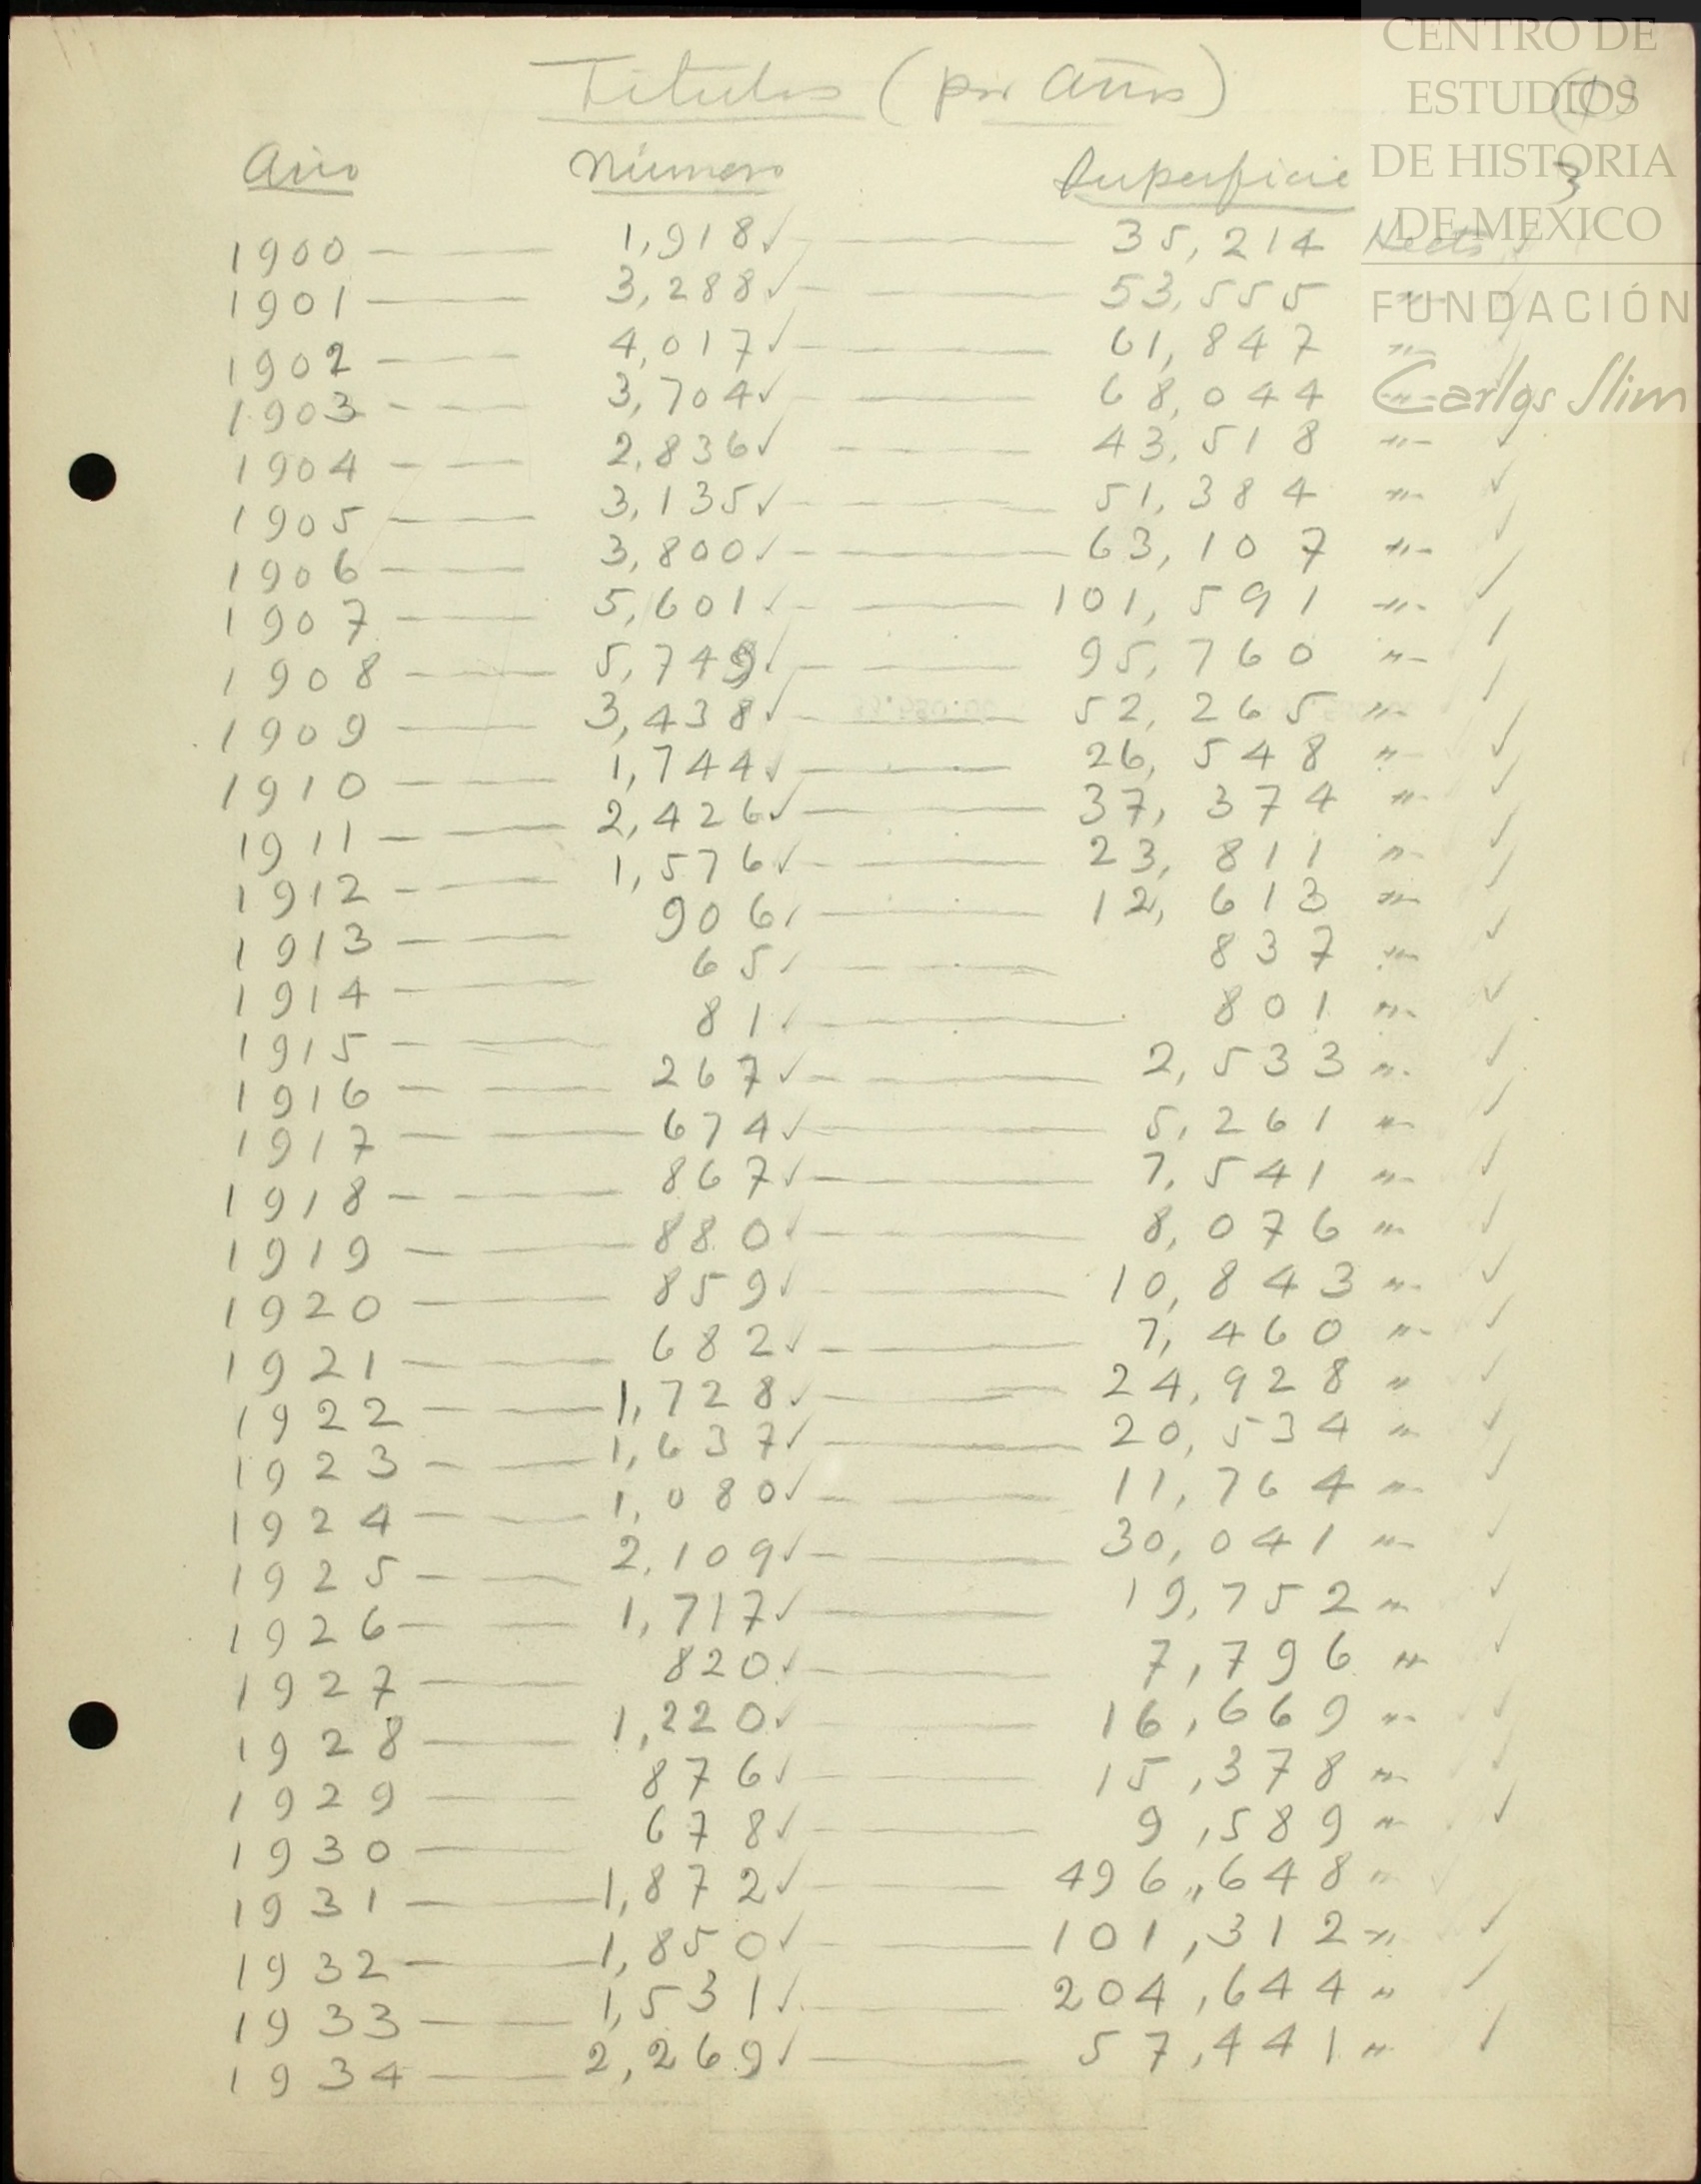 CENTRO DE
ESTUDIOS
DE HISTORIA
DE MEXICO
FUNDACIÓN
Carlos Slim
Títulos (por Años)
(1)
3
Año Número Superficie
1900 — — 1,918✓ — 35,214 Hects ✓
1901 — — 3,288✓ — — 53,555 -"- ✓
1902 — — 4,017✓ — — 61,847 -"- ✓
1903 — — 3,704✓ — — 68,044 -"- ✓
1904 — — 2,836✓ — — 43,518 -"- ✓
1905 — — 3,135✓ — — 51,384 -"- ✓
1906 — — 3,800✓ — — 63,107 -"- ✓
1907 — — 5,601✓ — — 101,591 -"- ✓
1908 — — 5,749✓ — — 95,760 -"- ✓
1909 — — 3,438✓ — — 52,265 -"- ✓
1910 — — 1,744✓ — — 26,548 -"- ✓
1911 — — 2,426✓ — — 37,374 -"- ✓
1912 — — 1,576✓ — — 23,811 -"- ✓
1913 — — 906✓ — — 12,613 -"- ✓
1914 — — 65✓ — — 837 -"- ✓
1915 — — 81✓ — — 801 -"- ✓
1916 — — 267✓ — — 2,533 -"- ✓
1917 — — 674✓ — — 5,261 -"- ✓
1918 — — 867✓ — — 7,541 -"- ✓
1919 — — 880✓ — — 8,076 -"- ✓
1920 — — 859✓ — — 10,843 -"- ✓
1921 — — 682✓ — — 7,460 -"- ✓
1922 — — 1,728✓ — — 24,928 " ✓
1923 — — 1,637✓ — — 20,534 -"- ✓
1924 — — 1,080✓ — — 11,764 -"- ✓
1925 — — 2,109✓ — — 30,041 -"- ✓
1926 — — 1,717✓ — — 19,752 -"- ✓
1927 — — 820✓ — — 7,796 -"- ✓
1928 — — 1,220✓ — — 16,669 -"- ✓
1929 — — 876✓ — — 15,378 -"- ✓
1930 — — 678✓ — — 9,589 -"- ✓
1931 — — 1,872✓ — — 496,648 " ✓
1932 — — 1,850✓ — — 101,312 -"- ✓
1933 — — 1,531✓ — — 204,644 " ✓
1934 — — 2,269✓ — — 57,441 " ✓